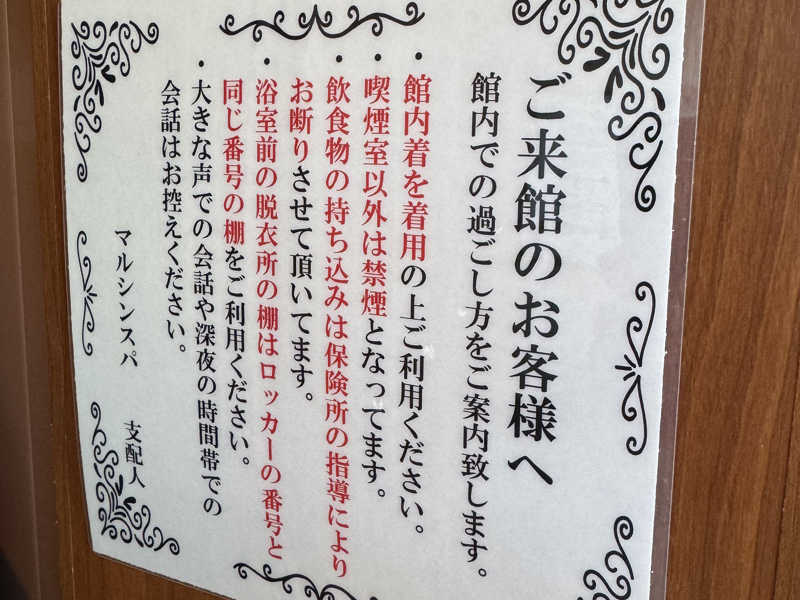 ご来館のお客様へ
館内での過ごし方をご案内致します。
・館内着を着用の上ご利用ください。
・喫煙室以外は禁煙となってます。
・飲食物の持ち込みは保険所の指導により
お断りさせて頂いてます。
・浴室前の脱衣所の棚はロッカーの番号と
同じ番号の棚をご利用ください。
・大きな声での会話や深夜の時間帯での
会話はお控えください。
マルシンスパ 支配人